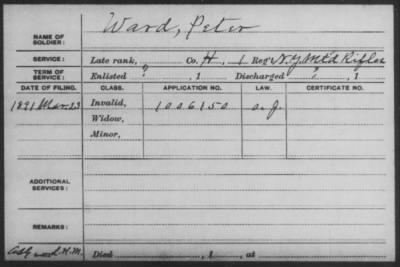 NAME OF SOLDIER: Ward, Peter
SERVICE: Late rank, Co. H, 1 Reg't N.Y. Mt'd Rifles
TERM OF SERVICE: Enlisted ?, 1 Discharged ?, 1
DATE OF FILING. CLASS. APPLICATION NO. LAW. CERTIFICATE NO.
1891 Mar. 23 Invalid, 1006150
Widow,
Minor,
ADDITIONAL SERVICES:
REMARKS:
Died , 1 , at